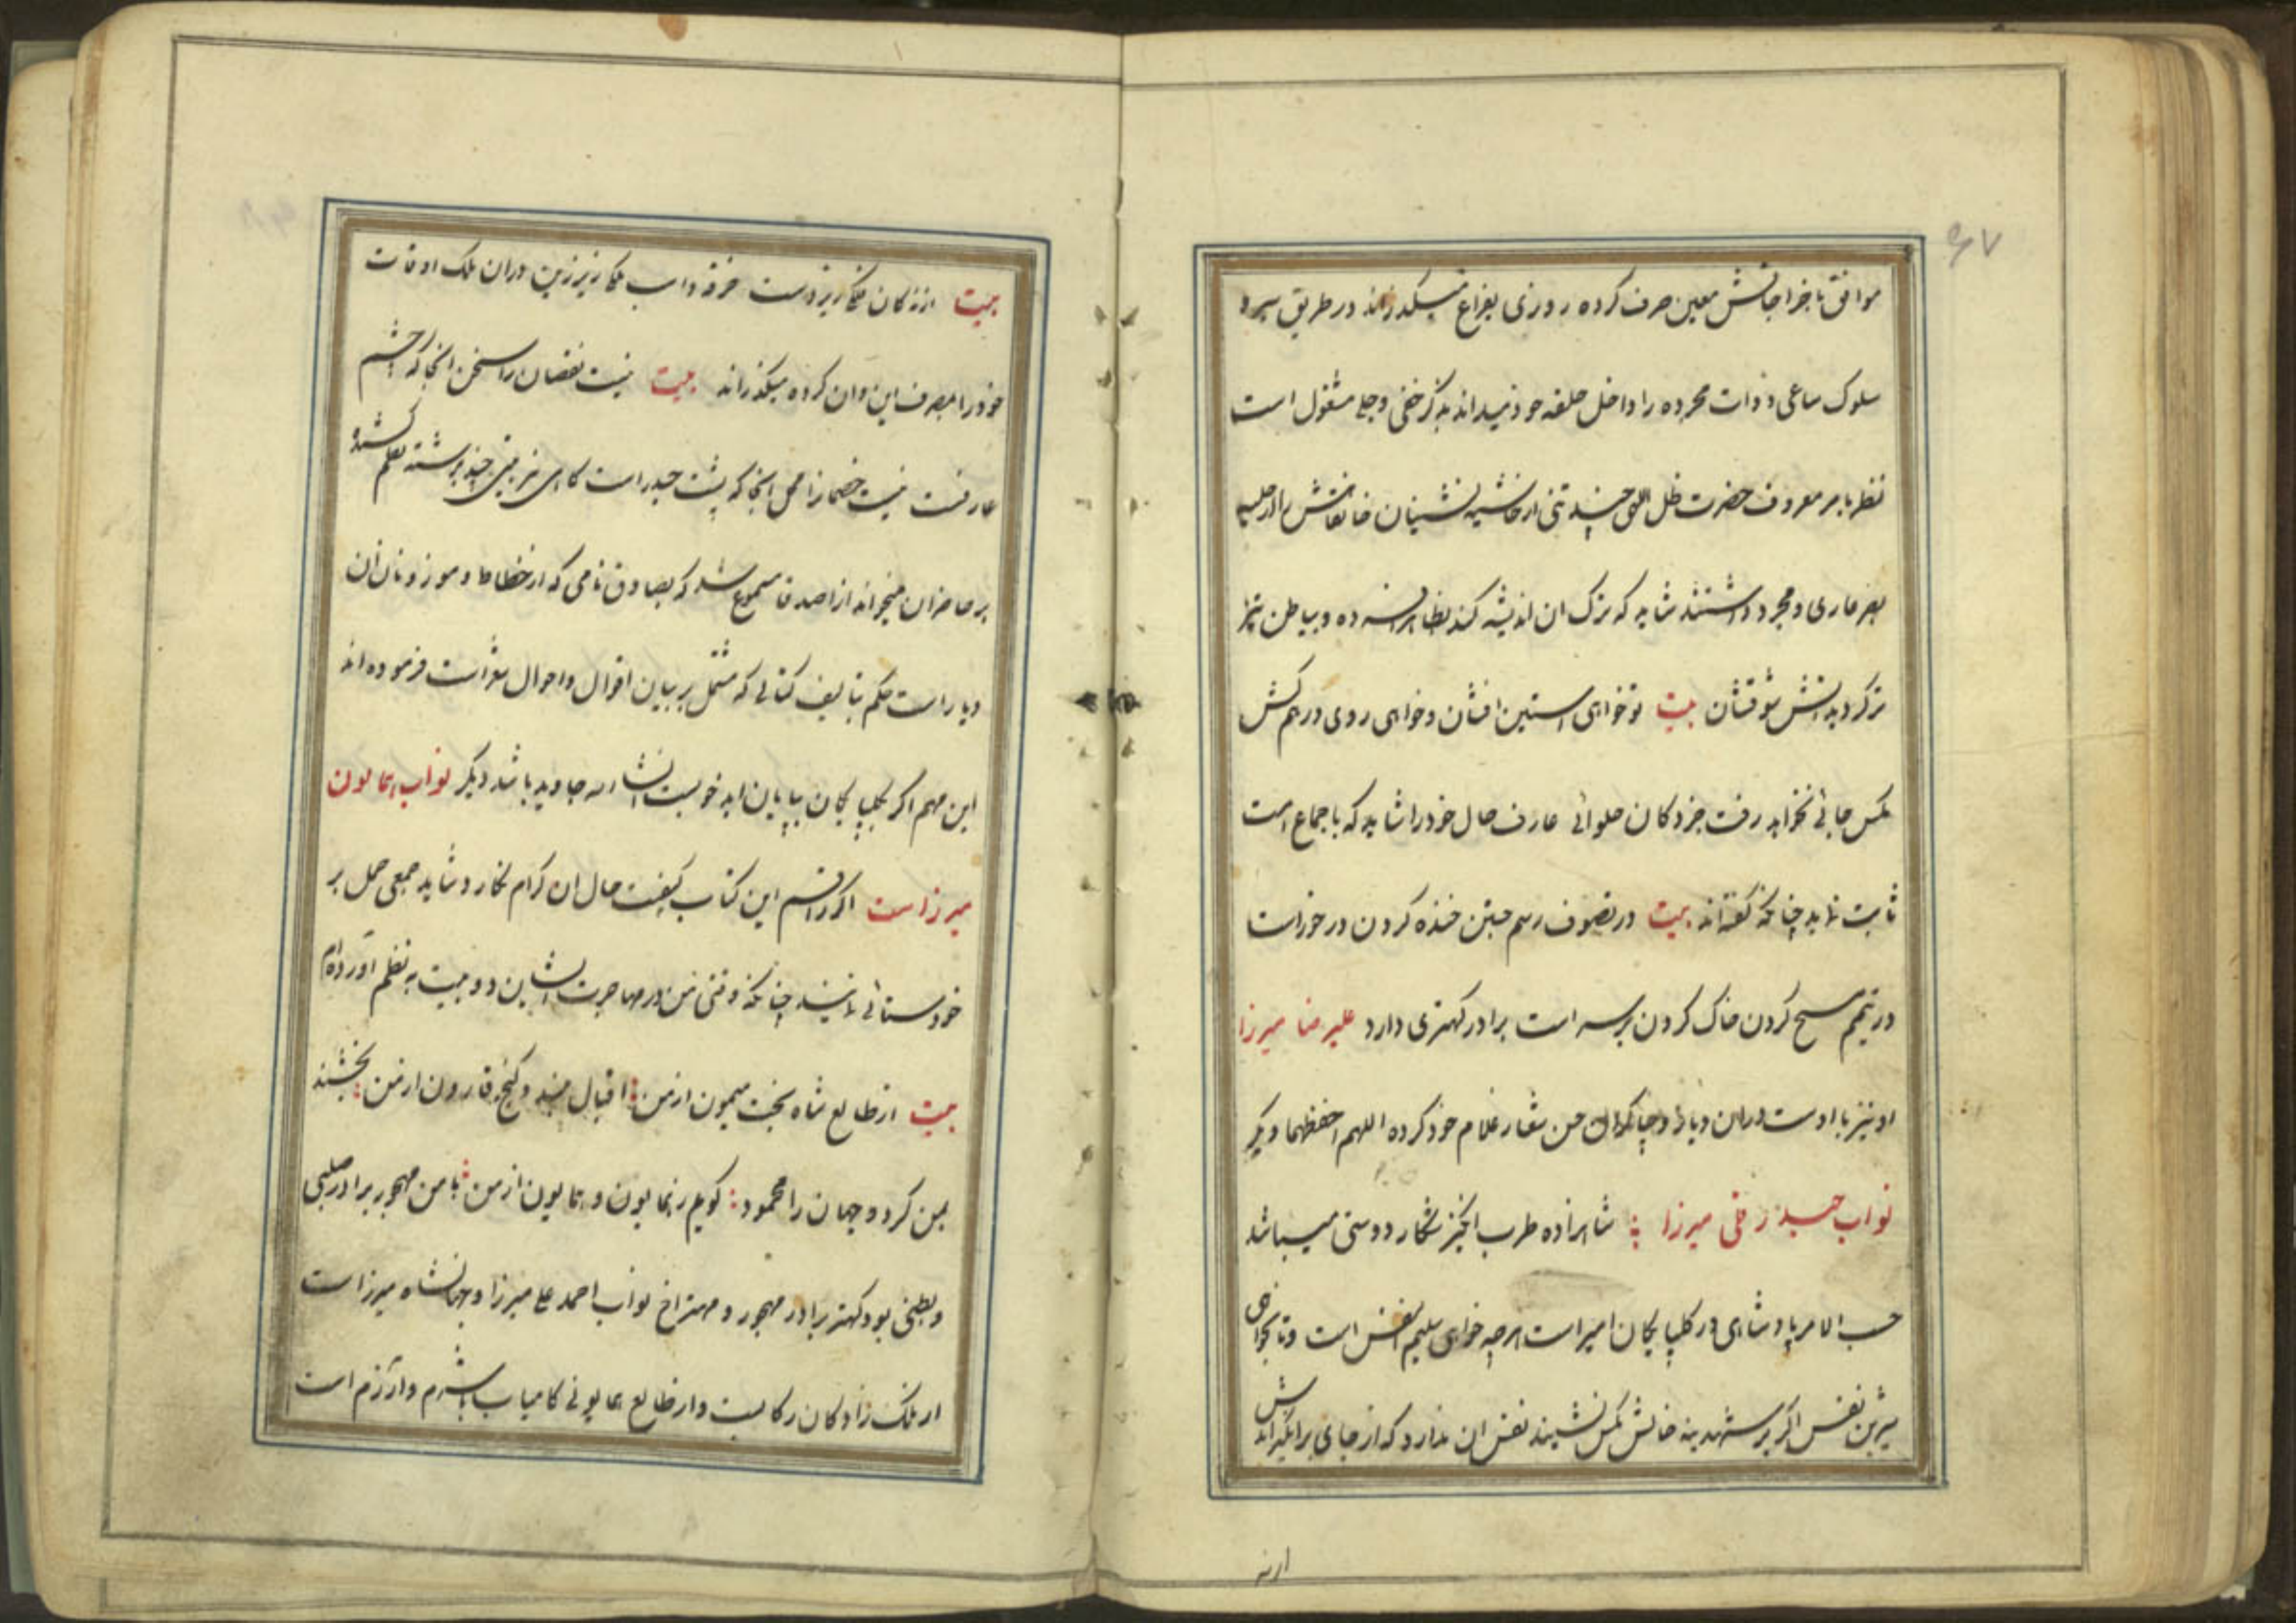 موافق با خراجاتش معین صرف کرده روزی بفراغ میگذراند در طریق سیر و
سلوک ساعی و ذات مجرده را داخل حلقه خود نمیداند بذکر خفی و جلی مشغول است
نظر بامر معروف حضرت ظل اللهی چند تنی از حاشیه نشینان خانقاهش را از حلیه
عاری و مجرد داشتند شاید که ترک ان اندیشه کند بظاهر افسرده و بباطن تیز
تر گردید اتش شوقشان بیت تو خواهی استین افشان و خواهی روی در هم کش
مکس جائی نخواهد رفت جز دکان حلوائی عارف حال خود را شاید که باجماع است
ثابت نماید چنانکه گفته‌اند بیت در تصوف رسم جستن خنده کردن در خور است
در تیمم مسح کردن خاک کردن بر سر است برادر کهتری دارد علیرضا میرزا
او نیز با اوست در ان دیار و چابکی حسن شعار غلام خود کرده اللهم احفظهما دیگر
نواب حیدر قلی میرزا شاهزاده طرب انگیز شکار دوستی میباشد
حسب الامر پادشاهی در کلپایکان امیر است هر چه خواهی سلیم النفس است و تا بخواهی
شیرین نفس اگر بر شهدینه خانش مکس نشیند نفس ان ندارد که از جای بر انگیزاندش
از نه
بیت از زکان دست خرقه در ان ملک اوقات
خود را بصرف این و ان کرده میگذراند بیت نیست نقصان را سخن انجا که را چشم
عارفست نیست خصمانرا محل انجا که پشت حیدر است کاهی نیز بیتی چند برشته نظم کشیده
بر حاضران میخواند از اصدقا مسموع شد که بصادق نامی که از خطاط و موزونان ان
دیار است حکم بتالیف کتابی که مشتمل بر بیان اقوال و احوال شعر است فرموده اند
این مهم اگر بکلپایکان بپایان اید خوبست انشاالله جاوید باشد دیگر نواب همایون
میرزاست اگر راقم این کتاب کیفیت حال ان کرام نکارد شاید جمعی حمل بر
خودستائی نمایند چنانکه وقتی من در مهاجرت ایشان دو بیت به نظم آورده‌ام
بیت از طالع شاه بخت میمون از من اقبال بلند و گنج قارون از من بخشند
بمن گر دو جهان را محمود کویم همایون و همایون از من با من مهجور برادر صلبی
و بطنی بود کهتر برادر مهجور و مهتر اخ نواب احمد علی میرزا و جهانشاه میرزاست
از ملک زادکان رکابست و از طالع همایونی کامیاب با شرم و آزرم است